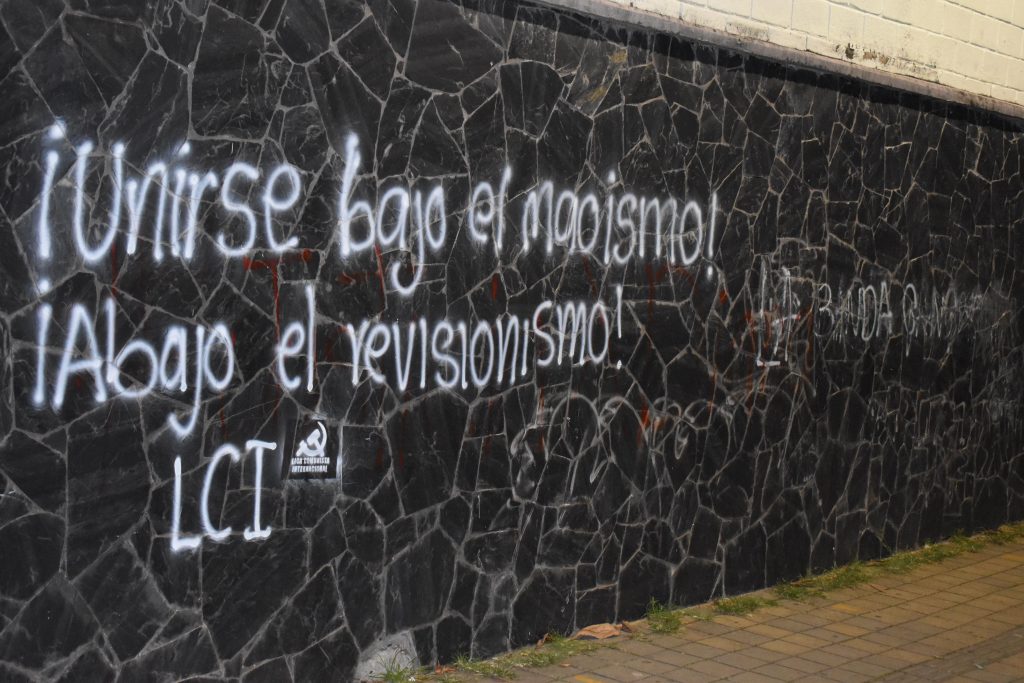 ¡Unirse bajo el maoismo!
¡Abajo el revisionismo!
LCI
LIGA COMUNISTA
INTERNACIONAL